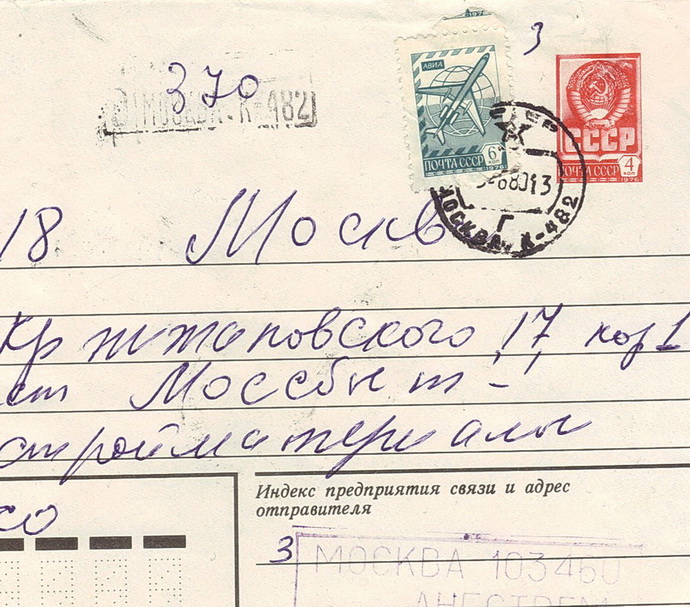 3
370
МОСКВА К-482
АВИА
6 коп
ПОЧТА СССР
1976
СССР
4 коп
ПОЧТА СССР
1976
6 80 13
МОСКВА К-482
Г
18 Москв
Кржижановского 17 кор 1
Моссбыт -
стройматериалы
со
Индекс предприятия связи и адрес
отправителя
3
МОСКВА 103460
АНГСТРЕМ